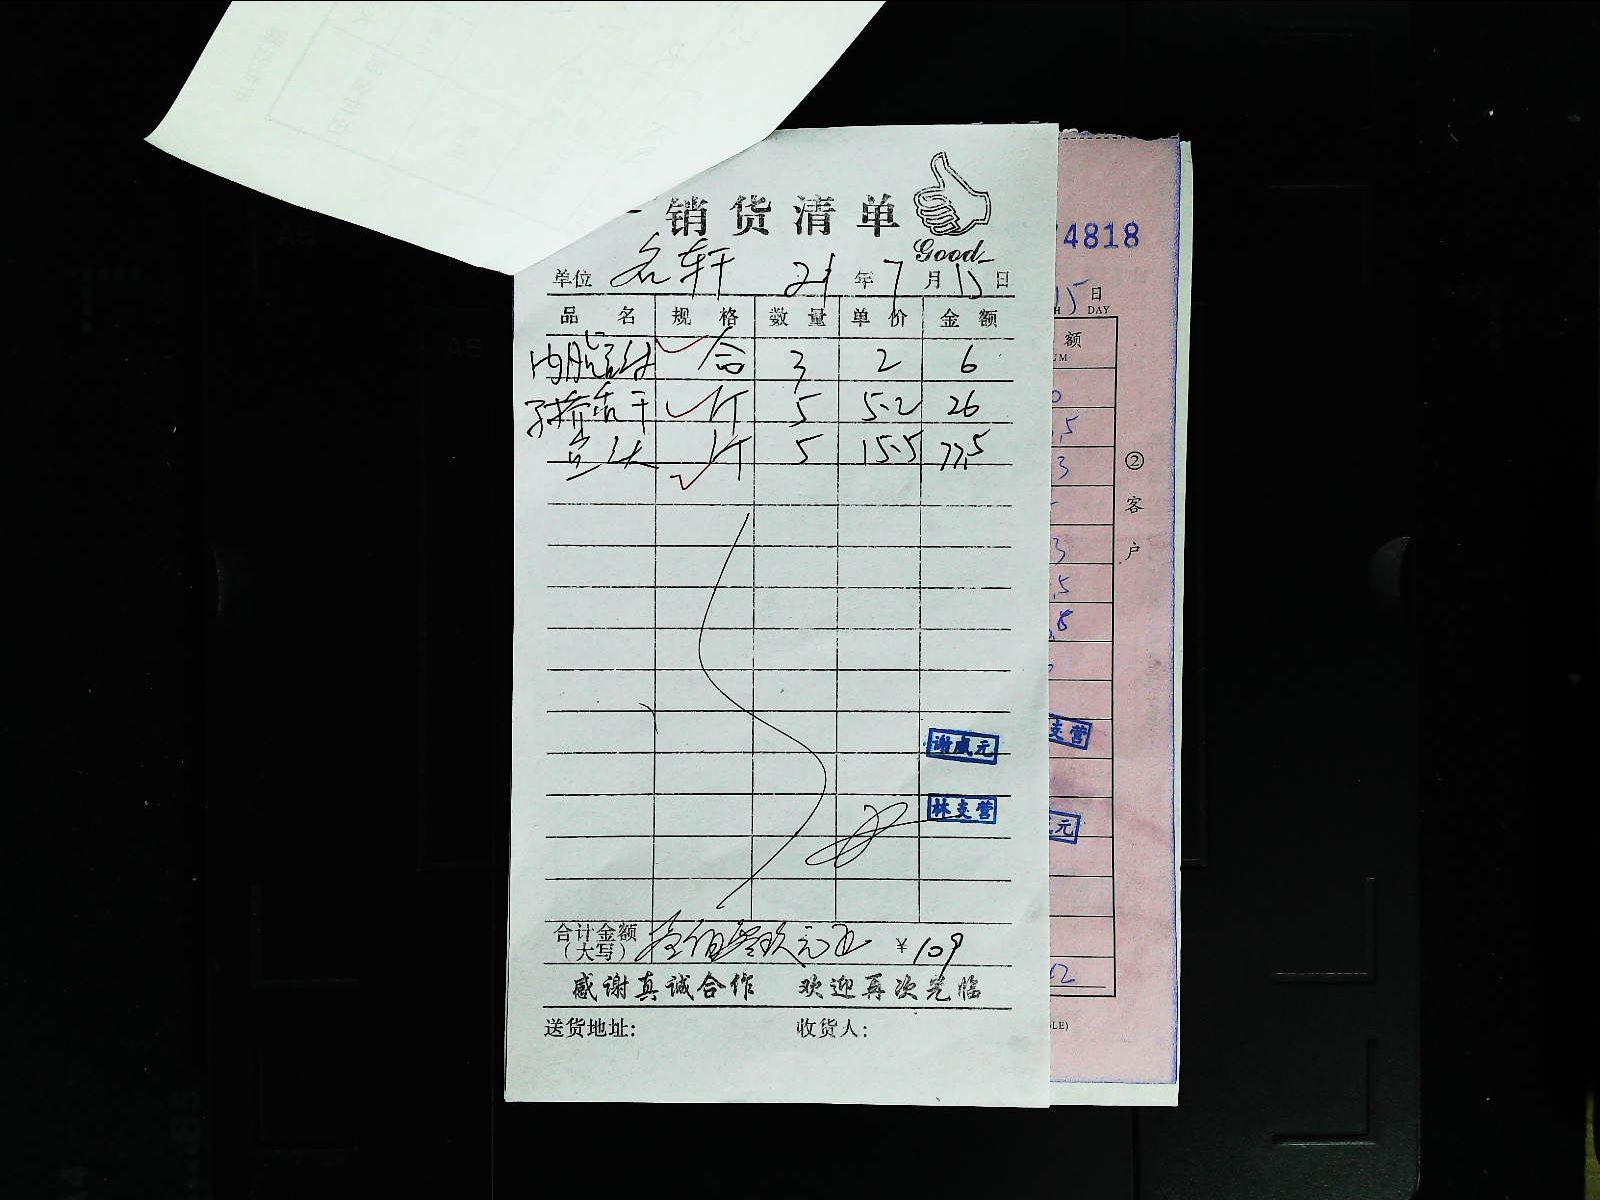 销货清单
Good
单位 名轩 21年7月15日
品名 规格 数量 单价 金额
内脂豆付 合 3 2 6
干 斤 5 5.2 26
斤 5 15.5 77.5
谢威元
林支营
合计金额(大写) 壹佰零玖元正 ¥109
感谢真诚合作 欢迎再次光临
送货地址: 收货人:
4818
15日
DAY
额
UM
3
支营
元
② 客户